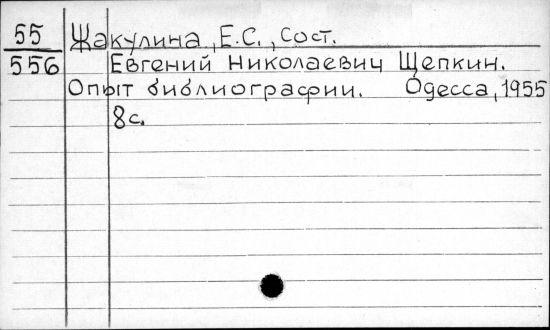 55 Жакулина, Е.С., сост.
556 Евгений Николаевич Щепкин.
Опыт библиографии. Одесса, 1955
8с.